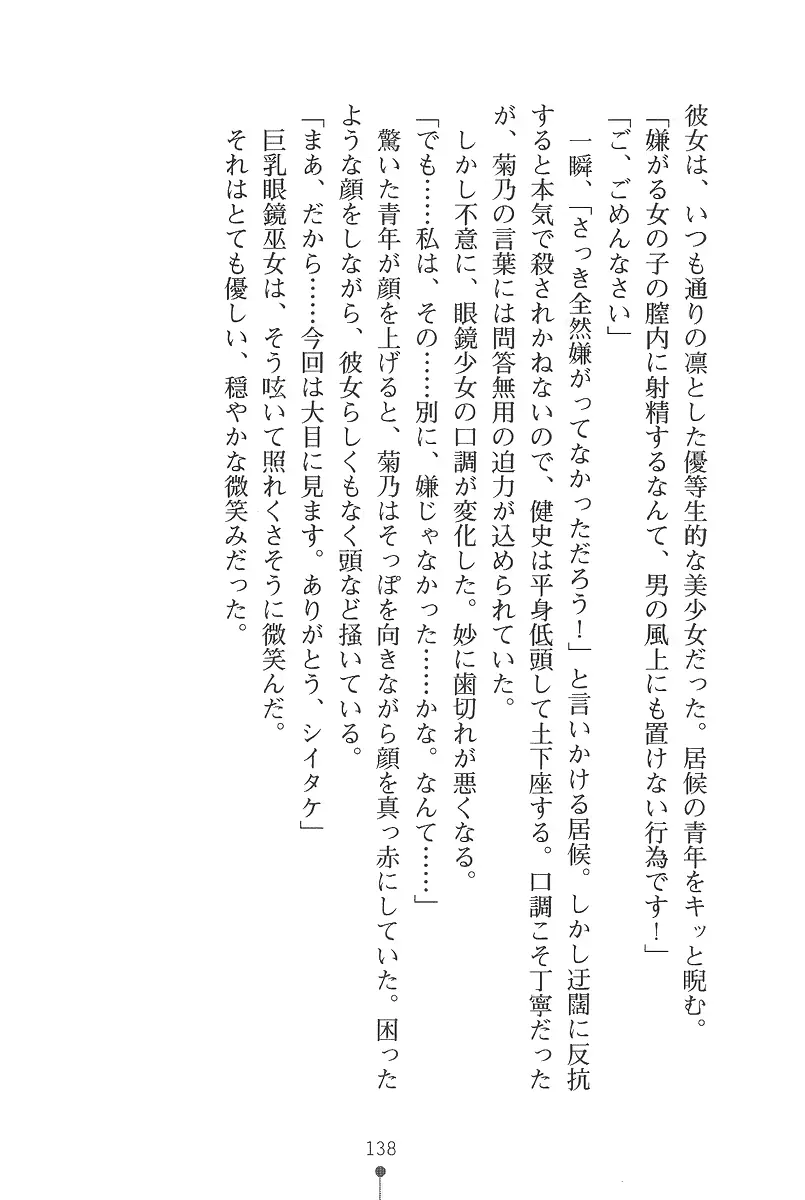 彼女は、いつも通りの凛とした優等生的な美少女だった。居候の青年をキッと睨む。
「嫌がる女の子の膣内に射精するなんて、男の風上にも置けない行為です！」
「ご、ごめんなさい」
一瞬、「さっき全然嫌がってなかっただろう！」と言いかける居候。しかし迂闊に反抗
すると本気で殺されかねないので、健史は平身低頭して土下座する。口調こそ丁寧だった
が、菊乃の言葉には問答無用の迫力が込められていた。
しかし不意に、眼鏡少女の口調が変化した。妙に歯切れが悪くなる。
「でも……私は、その……別に、嫌じゃなかった……かな。なんて……」
驚いた青年が顔を上げると、菊乃はそっぽを向きながら顔を真っ赤にしていた。困った
ような顔をしながら、彼女らしくもなく頭など掻いている。
「まぁ、だから……今回は大目に見ます。ありがとう、シイタケ」
巨乳眼鏡巫女は、そう呟いて照れくさそうに微笑んだ。
それはとても優しい、穏やかな微笑みだった。
138